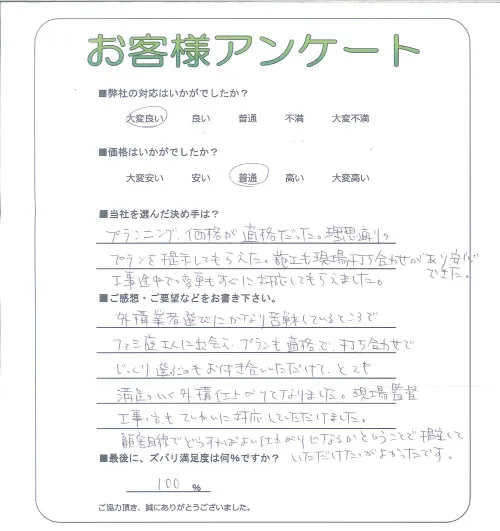 お客様アンケート
■弊社の対応はいかがでしたか?
大変良い 良い 普通 不満 大変不満
■価格はいかがでしたか?
大変安い 安い 普通 高い 大変高い
■当社を選んだ決め手は?
プランニング、価格が適格だった。理想通りの
プランを提示してもらえた。施工も現場打ち合わせがあり安心
できた。
工事途中での変更もすぐに対応してもらえました。
■ご感想・ご要望などをお書き下さい。
外構業者選びにかなり苦戦しているところで
ファミ庭さんに出会え、プランも適格で、打ち合わせで
じっくり お付き合いいただけて、とても
満足のいく外構仕上がりになりました。現場監督
工事 も ていねいに対応していただけました。
顧客目線でどうすればよい仕上がりになるかということで提案して
いただけた がよかったです。
■最後に、ズバリ満足度は何%ですか?
100 %
ご協力頂き、誠にありがとうございました。